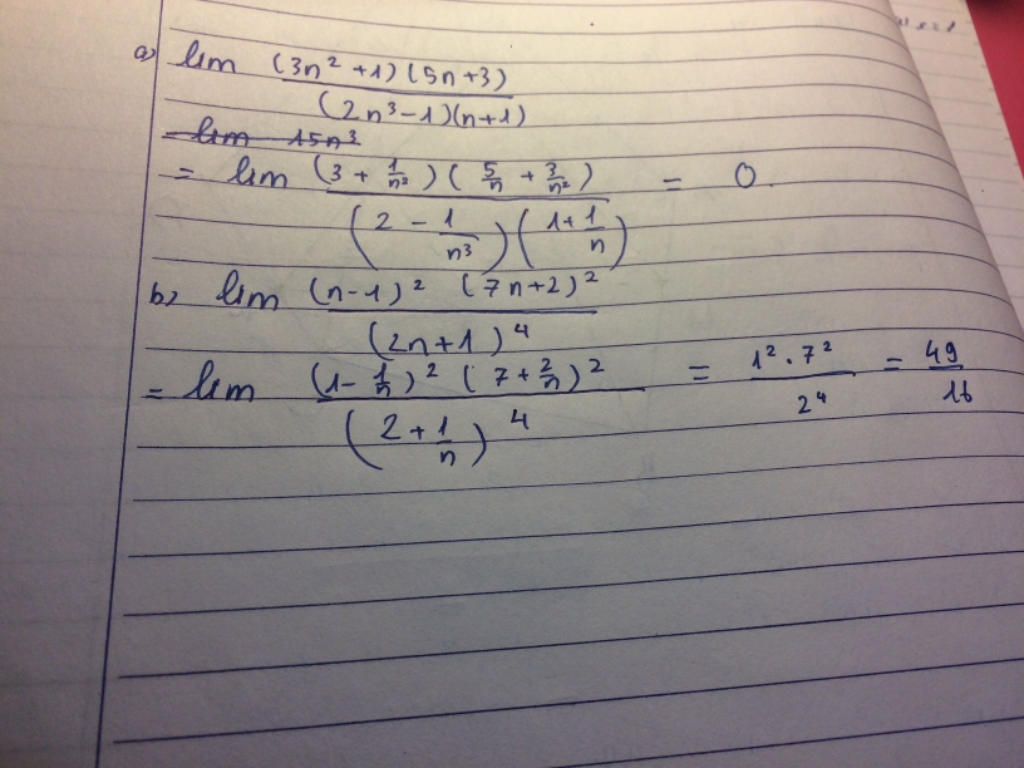 a) lim (3n² + 1)(5n + 3)
(2n³ - 1)(n + 1)
lim 15n³
= lim (3 + 1/n²)(5/n + 3/n²) = 0.
(2 - 1/n³)(1 + 1/n)
b) lim (n - 1)² (7n + 2)²
(2n + 1)⁴
= lim (1 - 1/n)² (7 + 2/n)² = 1² . 7² / 2⁴ = 49/16
(2 + 1/n)⁴